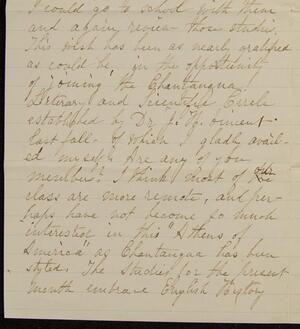 I could go to school with them
and again review those studies.
This wish has been as nearly gratified
as could be, in the opportunity
of "joining" the Chautauqua
Literary and Scientific Circle
established by Dr. J. H. Vincent -
last fall - of which I gladly avail-
ed myself. Are any of you
members? I think most of the
class are more remote, and per-
haps have not become so much
interested in this "Athens of
America" as Chautauqua has been
styled. The studies for the present
month embrace English History